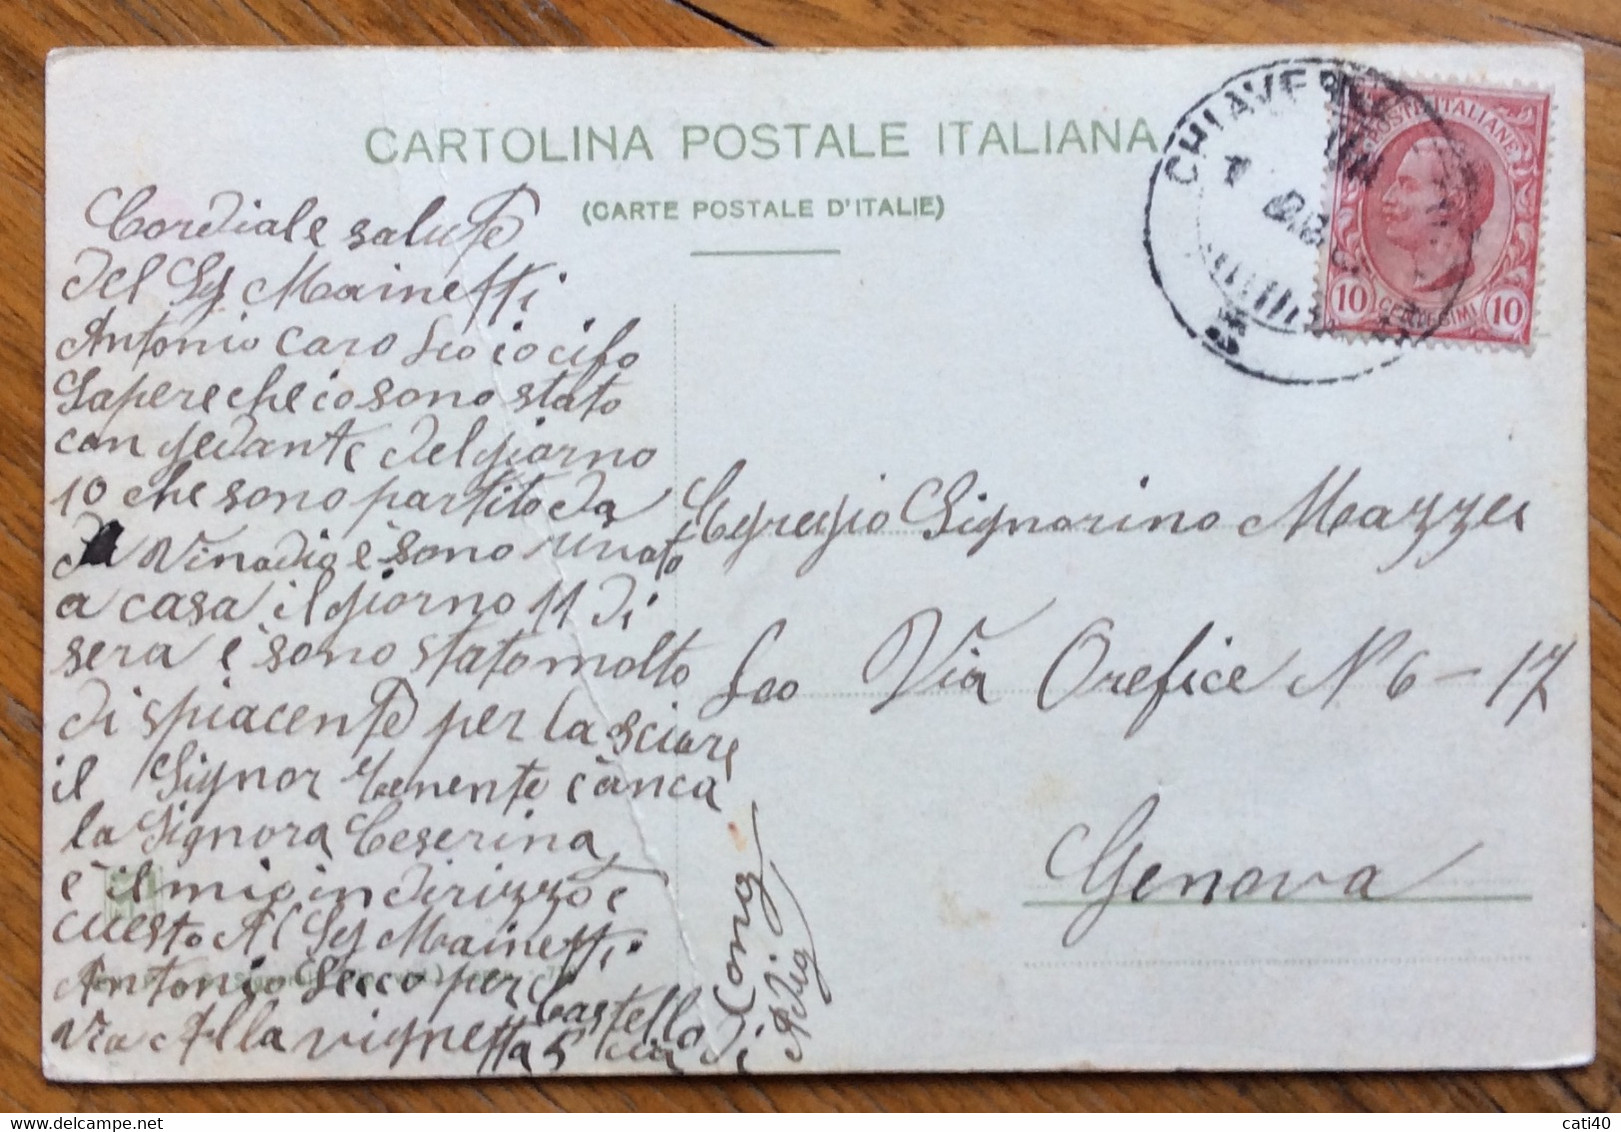 CARTOLINA POSTALE ITALIANA
(CARTE POSTALE D'ITALIE)
CHIAVE
POSTE ITALIANE
10 CENTESIMI 10
Cordiale salute
del Sg Mainetti
Antonio caro Leo io
Sapere che io sono stato
con gedante del giorno
10 che sono partito da
Vinadio è sono
a casa il giorno 11 di
sera è sono stato molto
dispiacente per la sciare
il Signor tenente è anca
la Signora Ceserina
è il mio indirizzo e
cuesto Al Sg Mainetti
Antonio Secco per
Via Alla vignetta 5 Castello
di Cong
Adig
Egregio Signorino Mazze
Leo Via Orefice N 6 - 17
Genova
cati40